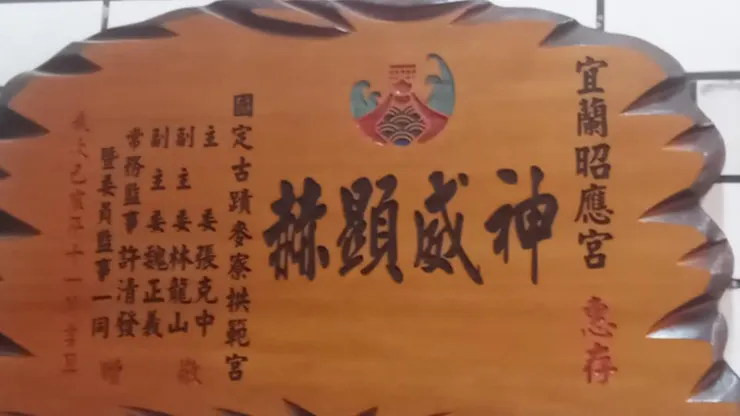 宜蘭昭應宮 惠存
神威顯赫
國定古蹟麥寮拱範宮
主委張克中
副主委林龍山
副主委魏正義
常務監事許清發
暨委員監事一同
敬贈